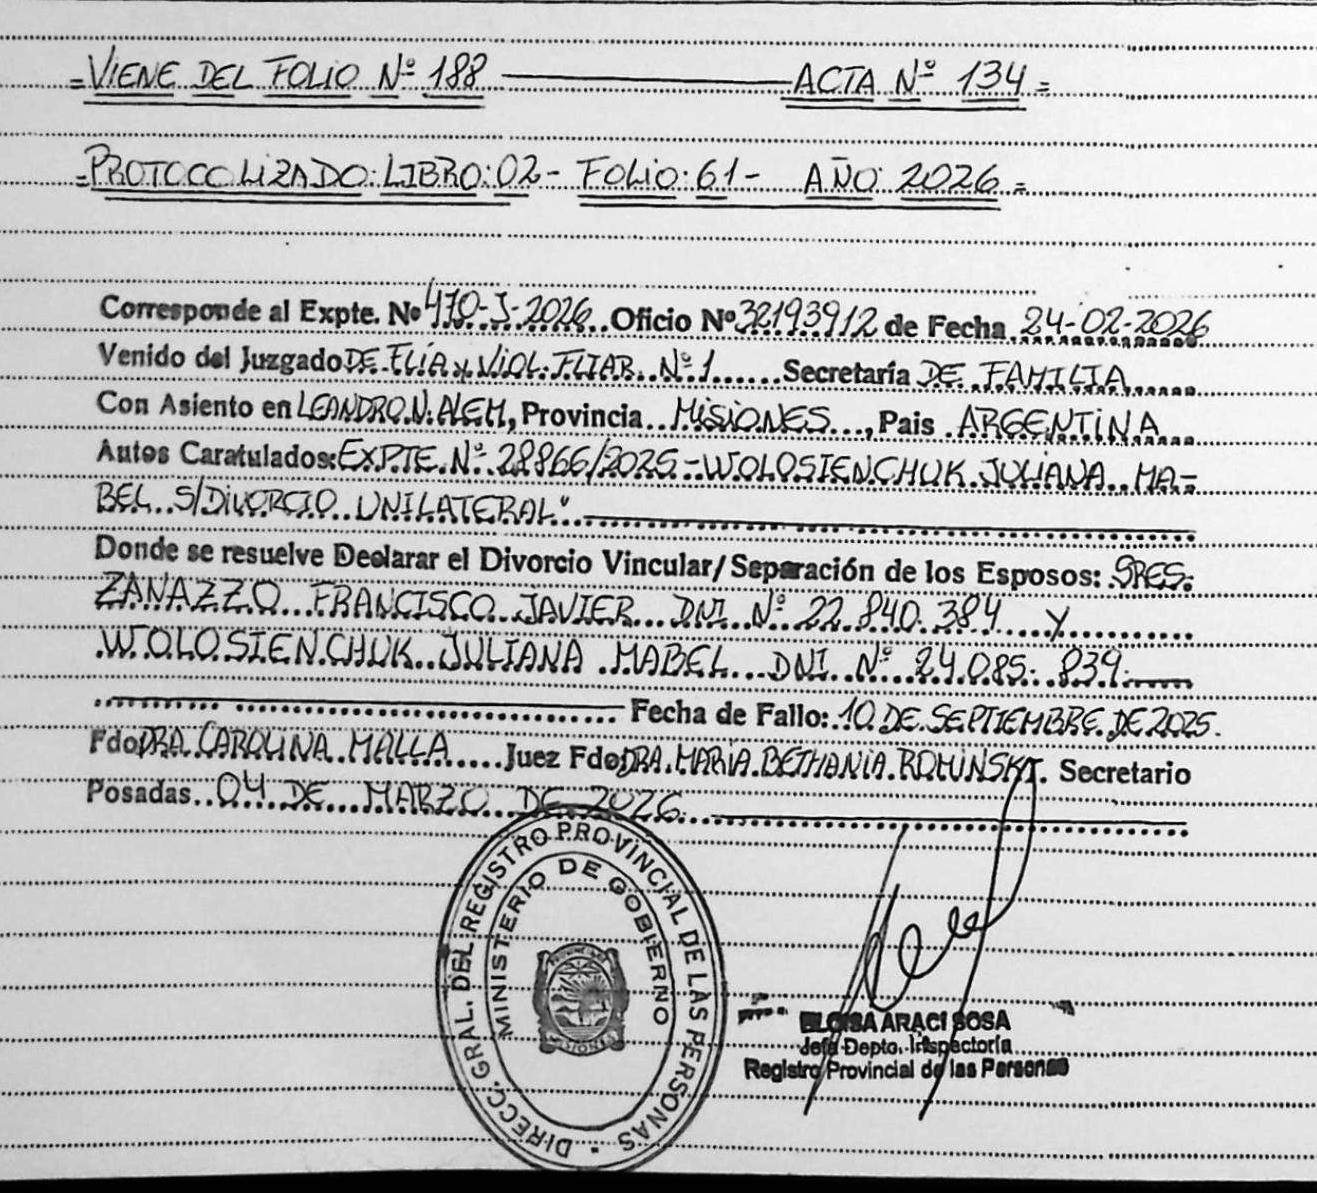 =VIENE DEL FOLIO Nº 188 ACTA Nº 134=
=PROTOCOLIZADO: LIBRO: 02- FOLIO: 61- AÑO 2026=
Corresponde al Expte. Nº 470-J-2026 Oficio Nº 32193912 de Fecha 24-02-2026
Venido del Juzgado DE FLÍA y VIOL. FLIAR. Nº 1 Secretaría DE FAMILIA
Con Asiento en LEANDRO N. ALEM, Provincia MISIONES, Pais ARGENTINA
Autos Caratulados: EXPTE. Nº 28866/2025-WOLOSIENCHUK JULIANA MA-
BEL S/DIVORCIO UNILATERAL"
Donde se resuelve Declarar el Divorcio Vincular/Separación de los Esposos: SRES.
ZANAZZO FRANCISCO JAVIER DNI Nº 22.840.384 Y
WOLOSIENCHUK JULIANA MABEL DNI Nº 24.085.839.
Fecha de Fallo: 10 DE SEPTIEMBRE DE 2025.
Fdo DRA. CAROLINA MALLA Juez Fdo DRA. MARIA BETHANIA ROMINSKI. Secretario
Posadas 04 DE MARZO DE 2026.
DIRECC. GRAL. DEL REGISTRO PROVINCIAL DE LAS PERSONAS
MINISTERIO DE GOBIERNO
MISIONES
ELOISA ARACI SOSA
Jefa Depto. Inspectoría
Registro Provincial de las Personas